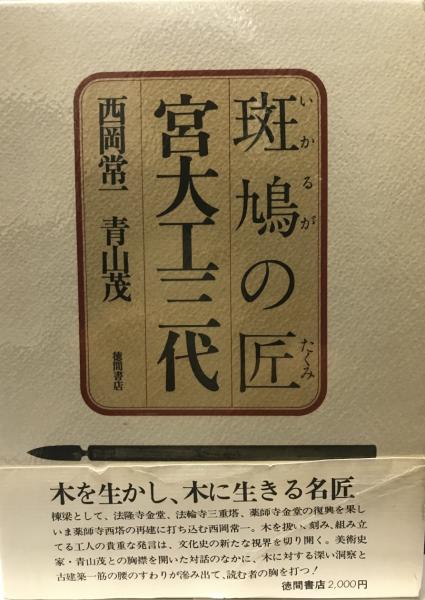 斑鳩の匠
いかるが
たくみ
宮大工三代
西岡常一 青山茂
徳間書店
木を生かし、木に生きる名匠
棟梁として、法隆寺金堂、法輪寺三重塔、薬師寺金堂の復興を果し
いま薬師寺西塔の再建に打ち込む西岡常一。木を扱い、刻み、組み立
てる工人の貴重な発言は、文化史の新たな視界を切り開く。美術史
家・青山茂との胸襟を開いた対話のなかに、木に対する深い洞察と
古建築一筋の腰のすわりが滲み出て、読む者の胸を打つ!
徳間書店 2,000円